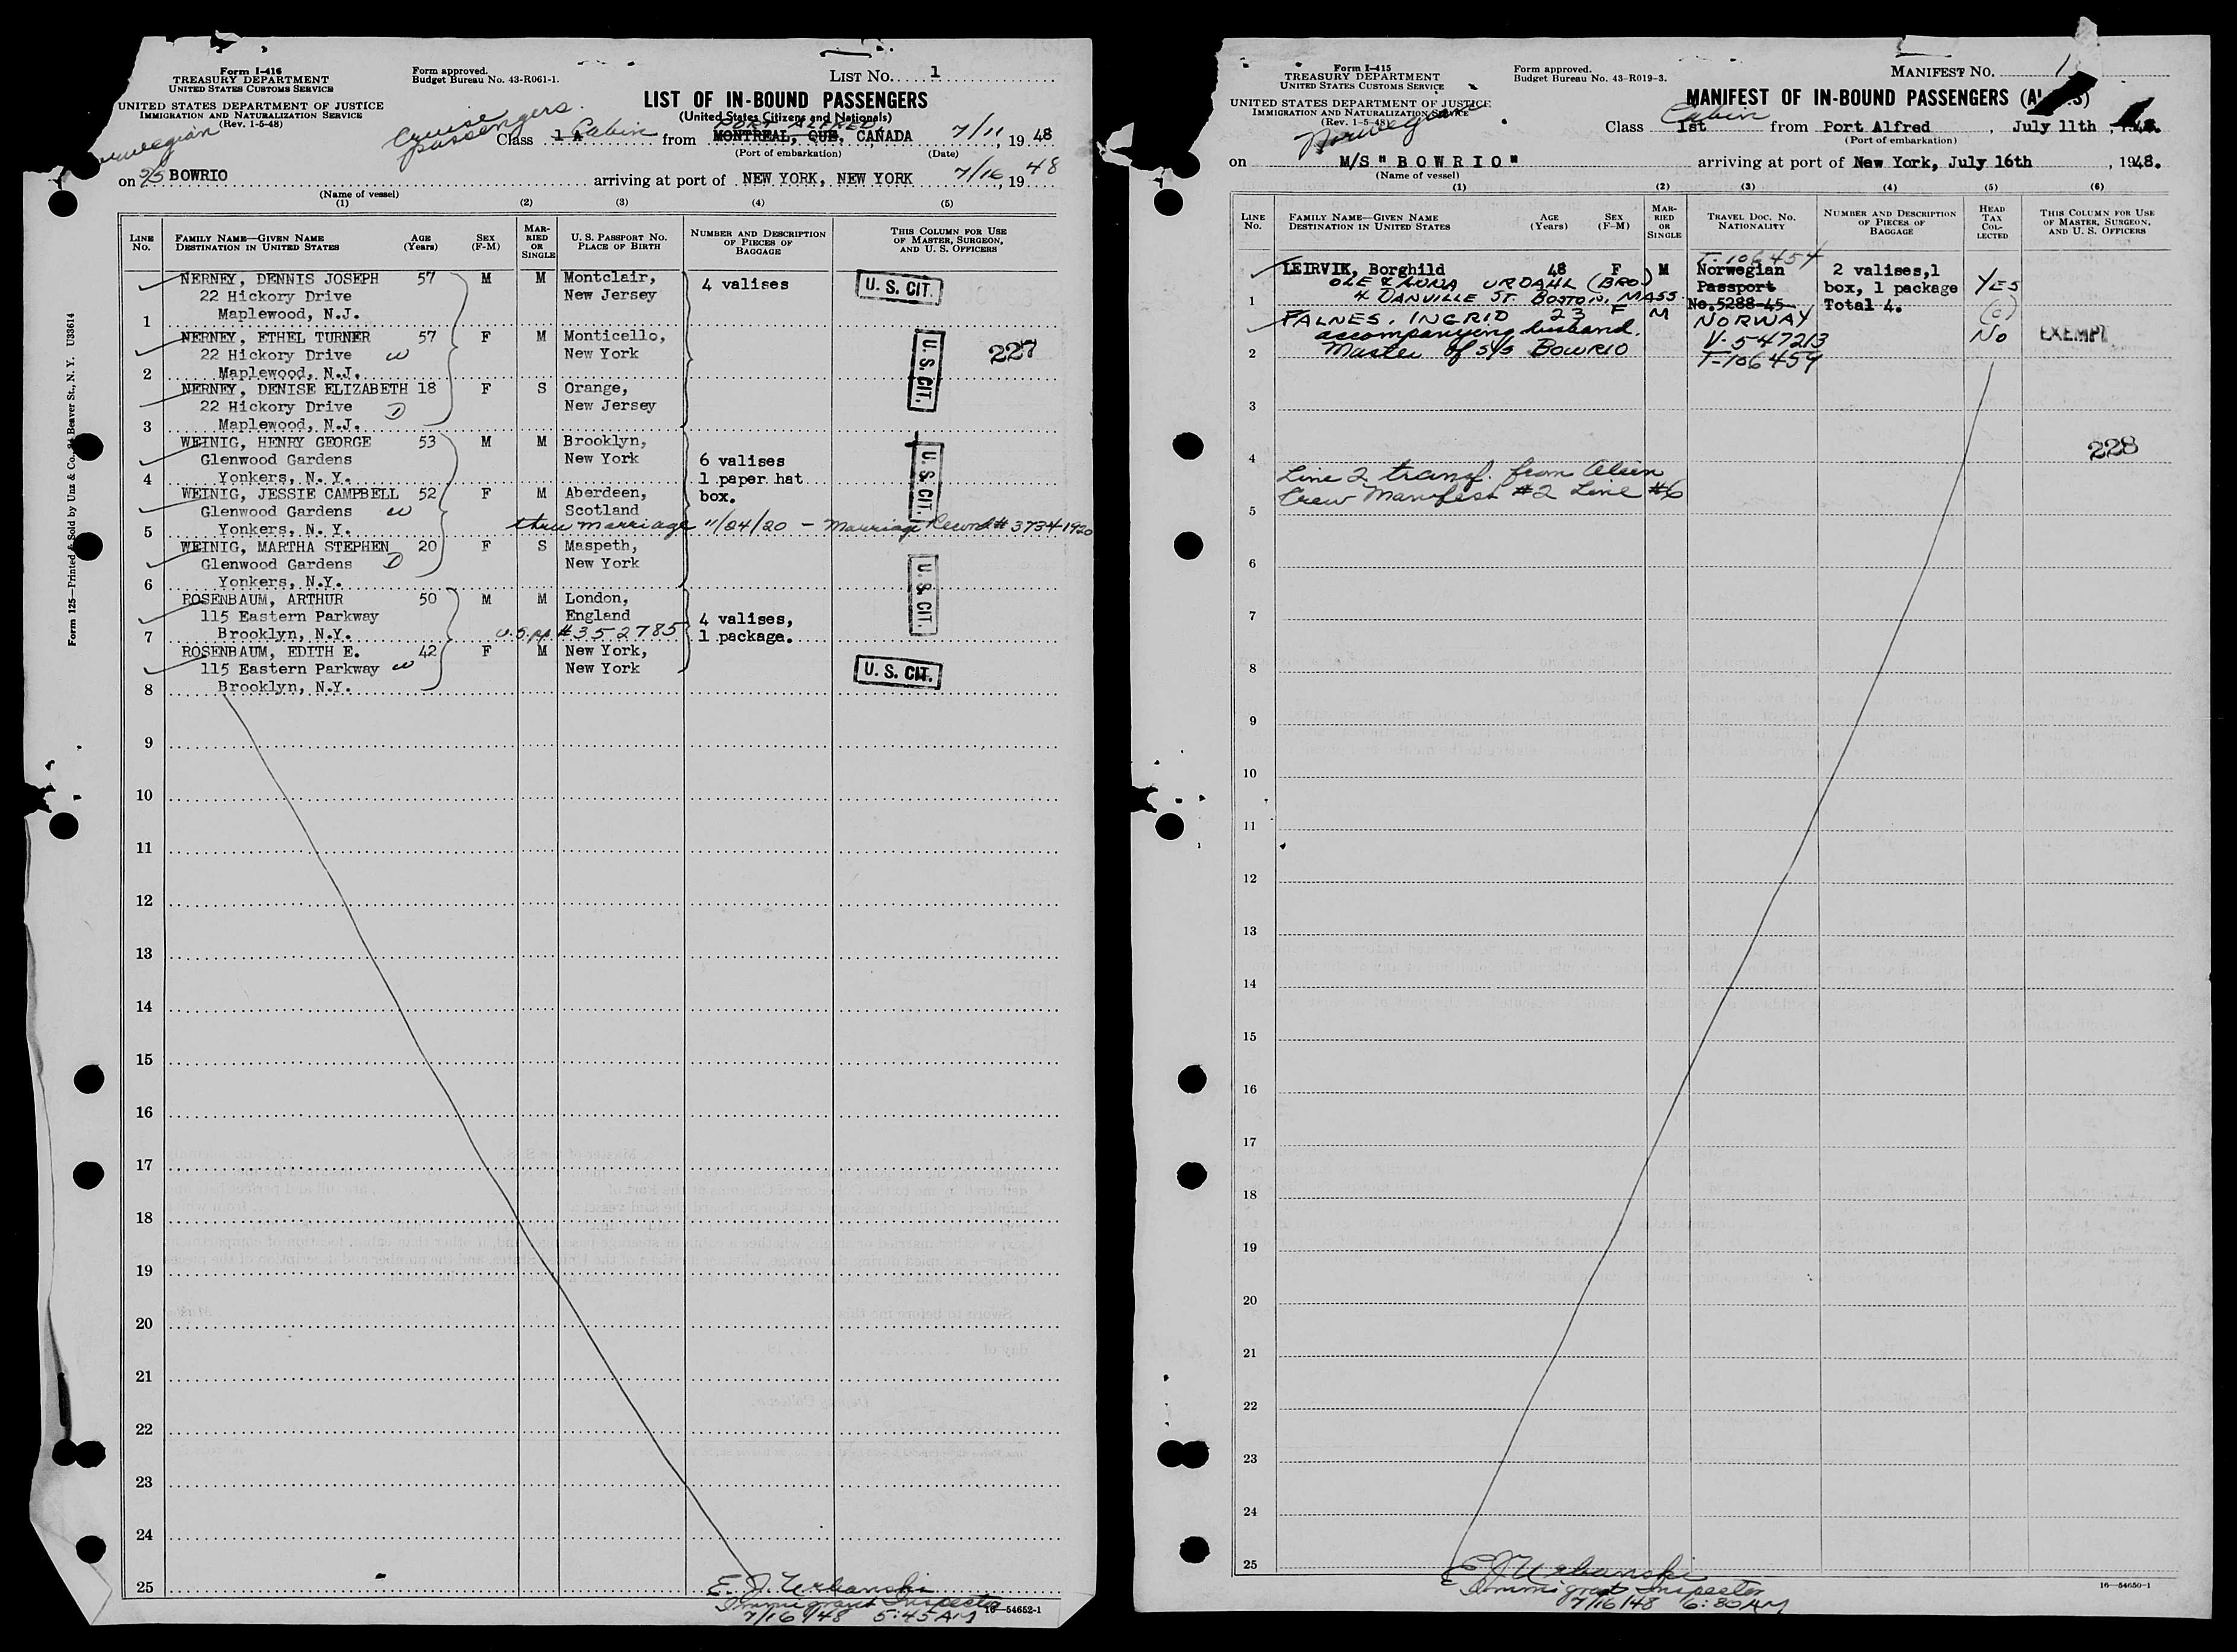 Form I-416
TREASURY DEPARTMENT
UNITED STATES CUSTOMS SERVICE
UNITED STATES DEPARTMENT OF JUSTICE
IMMIGRATION AND NATURALIZATION SERVICE
(Rev. 1-5-48)
Form approved.
Budget Bureau No. 43-R061-1.
LIST NO. 1
LIST OF IN-BOUND PASSENGERS
(United States Citizens and Nationals)
Cruise passengers.
PORT ALFRED,
Class 1 A Cabin from MONTREAL, QUE, CANADA 7/11, 1948
(Port of embarkation) (Date)
on S/S BOWRIO arriving at port of NEW YORK, NEW YORK 7/16, 1948
(Name of vessel)
(1) (2) (3) (4) (5)
LINE No. FAMILY NAME—GIVEN NAME DESTINATION IN UNITED STATES AGE (Years) SEX (F-M) MARRIED OR SINGLE U.S. PASSPORT NO. PLACE OF BIRTH NUMBER AND DESCRIPTION OF PIECES OF BAGGAGE THIS COLUMN FOR USE OF MASTER, SURGEON, AND U. S. OFFICERS
NERNEY, DENNIS JOSEPH 57 M M Montclair, 4 valises U. S. CIT.
22 Hickory Drive New Jersey
1 Maplewood, N.J.
NERNEY, ETHEL TURNER 57 F M Monticello, U. S. CIT. 227
22 Hickory Drive W New York
2 Maplewood, N.J.
NERNEY, DENISE ELIZABETH 18 F S Orange,
22 Hickory Drive D New Jersey
3 Maplewood, N.J.
WEINIG, HENRY GEORGE 53 M M Brooklyn,
Glenwood Gardens New York 6 valises U. S. CIT.
4 Yonkers, N. Y. 1 paper hat
WEINIG, JESSIE CAMPBELL 52 F M Aberdeen, box.
Glenwood Gardens W Scotland
5 Yonkers, N. Y. thru marriage 11/24/20 - Marriage Record # 3734-1920
WEINIG, MARTHA STEPHEN 20 F S Maspeth,
Glenwood Gardens D New York U. S. CIT.
6 Yonkers, N.Y.
ROSENBAUM, ARTHUR 50 M M London,
115 Eastern Parkway England 4 valises,
7 Brooklyn, N.Y. U.S.pp. #352785 1 package.
ROSENBAUM, EDITH E. 42 F M New York,
115 Eastern Parkway W New York U. S. CIT.
8 Brooklyn, N.Y.
9
10
11
12
13
14
15
16
17
18
19
20
21
22
23
24
25
E. J. Urbanski
Immigrant Inspector
7/16/48 5:45 AM
16—54652-1
Form 125—Printed & Sold by Unz & Co., 24 Beaver St., N. Y. U33614
Form I-415
TREASURY DEPARTMENT
UNITED STATES CUSTOMS SERVICE
UNITED STATES DEPARTMENT OF JUSTICE
IMMIGRATION AND NATURALIZATION SERVICE
(Rev. 1-5-48)
Norwegian
Form approved.
Budget Bureau No. 43-R019-3.
MANIFEST NO. 1
MANIFEST OF IN-BOUND PASSENGERS
Cabin
Class 1st from Port Alfred, July 11th, 1948.
(Port of embarkation)
on M/S "BOWRIO" arriving at port of New York, July 16th, 1948.
(Name of vessel)
(1) (2) (3) (4) (5) (6)
LINE No. FAMILY NAME—GIVEN NAME DESTINATION IN UNITED STATES AGE (Years) SEX (F-M) MARRIED OR SINGLE TRAVEL DOC. NO. NATIONALITY NUMBER AND DESCRIPTION OF PIECES OF BAGGAGE HEAD TAX COLLECTED THIS COLUMN FOR USE OF MASTER, SURGEON, AND U. S. OFFICERS
T-106454
LEIRVIK, Borghild 48 F M Norwegian 2 valises,1
OLE & ANNA URDAHL (BRO) Passport box, 1 package YES
1 4 DANVILLE ST. BOSTON, MASS. No.5288-45 Total 4. (c)
FALNES, INGRID 23 F M NORWAY
accompanying husband. V-547213 No EXEMPT
2 Master of S/S BOWRIO T-106459
3
4 228
Line 2 transf. from Alien
Crew Manifest #2 Line #6
5
6
7
8
9
10
11
12
13
14
15
16
17
18
19
20
21
22
23
24
25
E J Urbanski
Immigrant Inspector
7/16/48 6:30 AM
16—54650-1